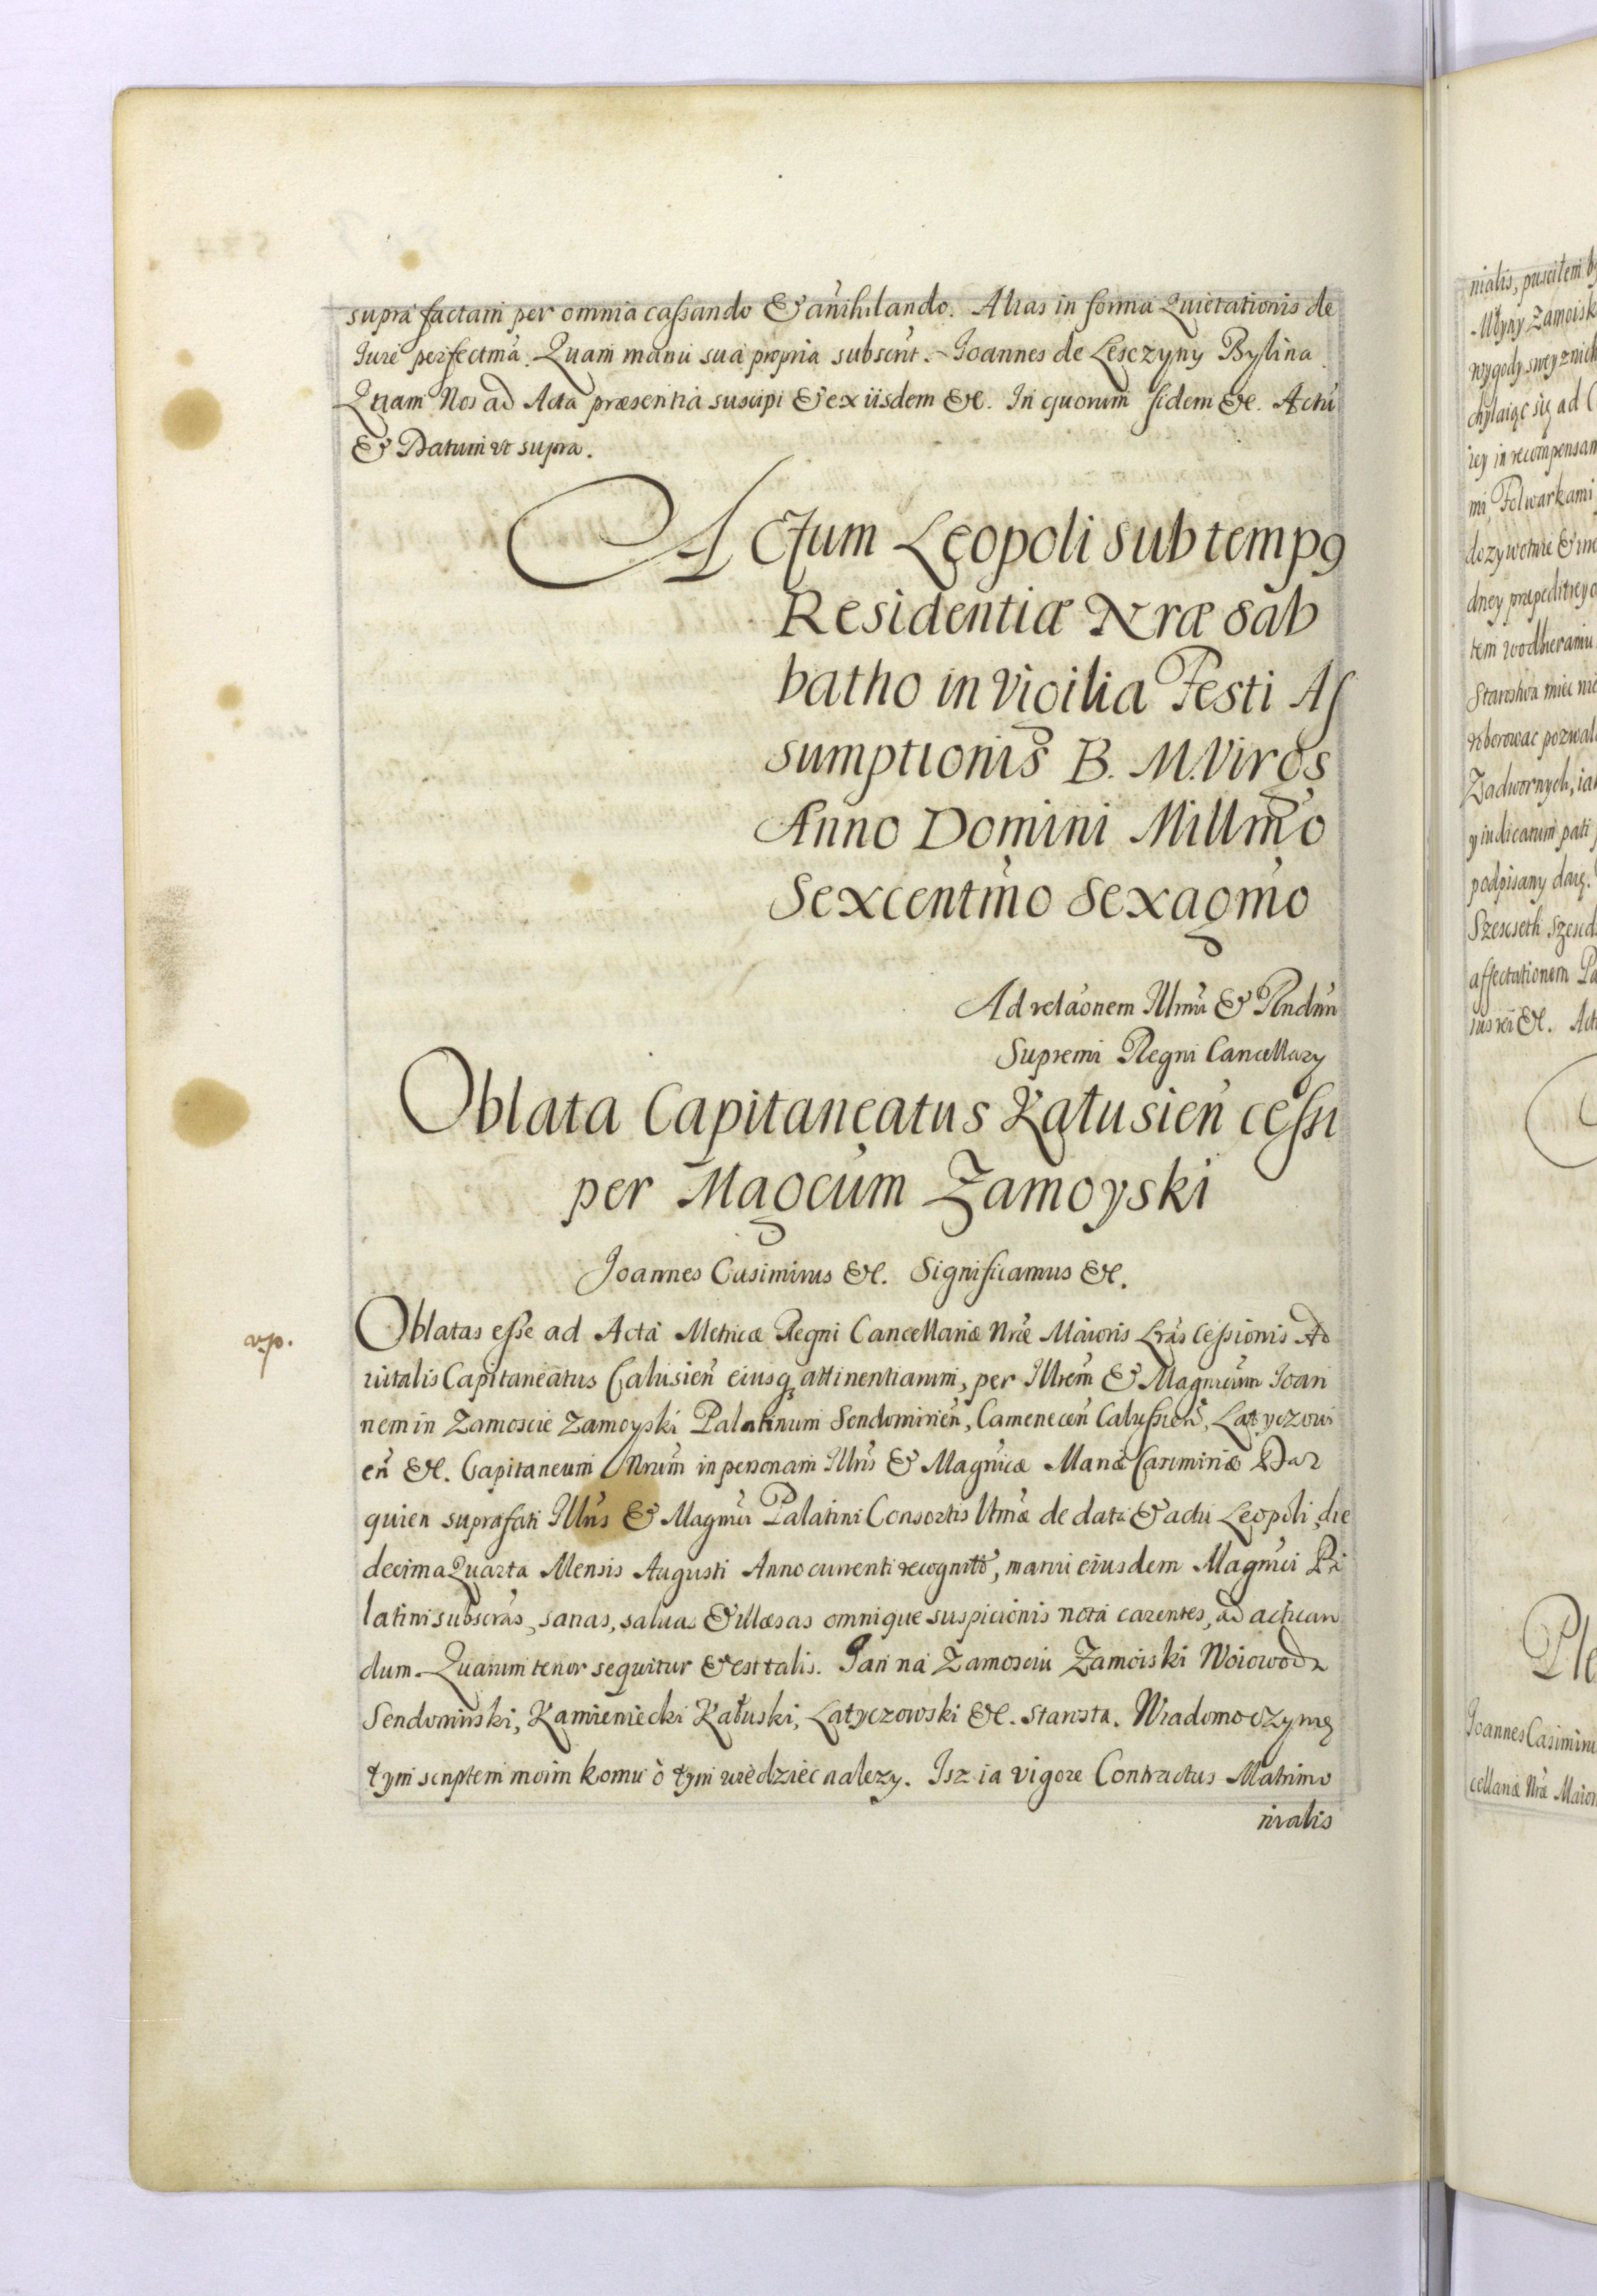 supra factam per omnia cassando & anihilando. Alias in forma Quietationis de
Jure perfectma. Quam manu sua propria subscrit. Joannes de Lesczyny Bylina.
Quam Nos ad Acta præsentia suscipi & ex iisdem &c. In quorum fidem &c. Actũ
& Datum ut supra.
Actum Leopoli sub temp9
Residentiæ Nræ Sab
batho in Vigilia Festi As
sumptionis B. M. Virgs
Anno Domini Millmo
Sexcentmo Sexagmo
Ad relaonem Illmi & Rndmi
Supremi Regni Cancellary
Oblata Capitaneatus Kałusien cessi
per Magcum Zamoyski
Joannes Casimirus &c. Significamus &c.
vp.
Oblatas esse ad Acta Metricæ Regni Cancellariæ Nræ Maioris Lras Cessionis Ad
vitalis Capitaneatus Calusien eiusq attinentiarum, per Illrem & Magnicum Joan
nem in Zamoscie Zamoyski Palatinum Sendomirien, Camenecen Calussien, Latyczovi
en &c. Capitaneum Nrum in personam Illris & Magnicæ Mariæ Casimiriæ Dar
quien suprafati Illris & Magnici Palatini Consortis Ltmæ de data & actu Leopoli die
decima Quarta Mensis Augusti Anno currenti recognito, manu eiusdem Magnici Pa
latini subscras, sanas, saluas & illæsas omnique suspicionis nota carentes, ad actican
dum. Quarum tenor sequitur & est talis. Jan na Zamosciu Zamoiski Woiewoda
Sendomirski, Kamieniecki Kałuski, Latyczowski &c. Starosta. Wiadomo czynię
tym scriptem moim komu o tym wiedziec nalezy. Isz ia vigore Contractus Matrimo
nialis
nialis, puscitem
Młyny Zamoisk
wygody swey z nich
chylaiąc się ad
rey in recompensam
mi, Folwarkami
dozywotnie &
dney præpeditiey
tem w odbieraniu
Starostwa miec nie
Zadwornych, ia
y iudicatum pati
podpisany daię.
affectationem Pa
ius rei &c. Act
Joannes Casimiru
cellariæ Nræ Maior